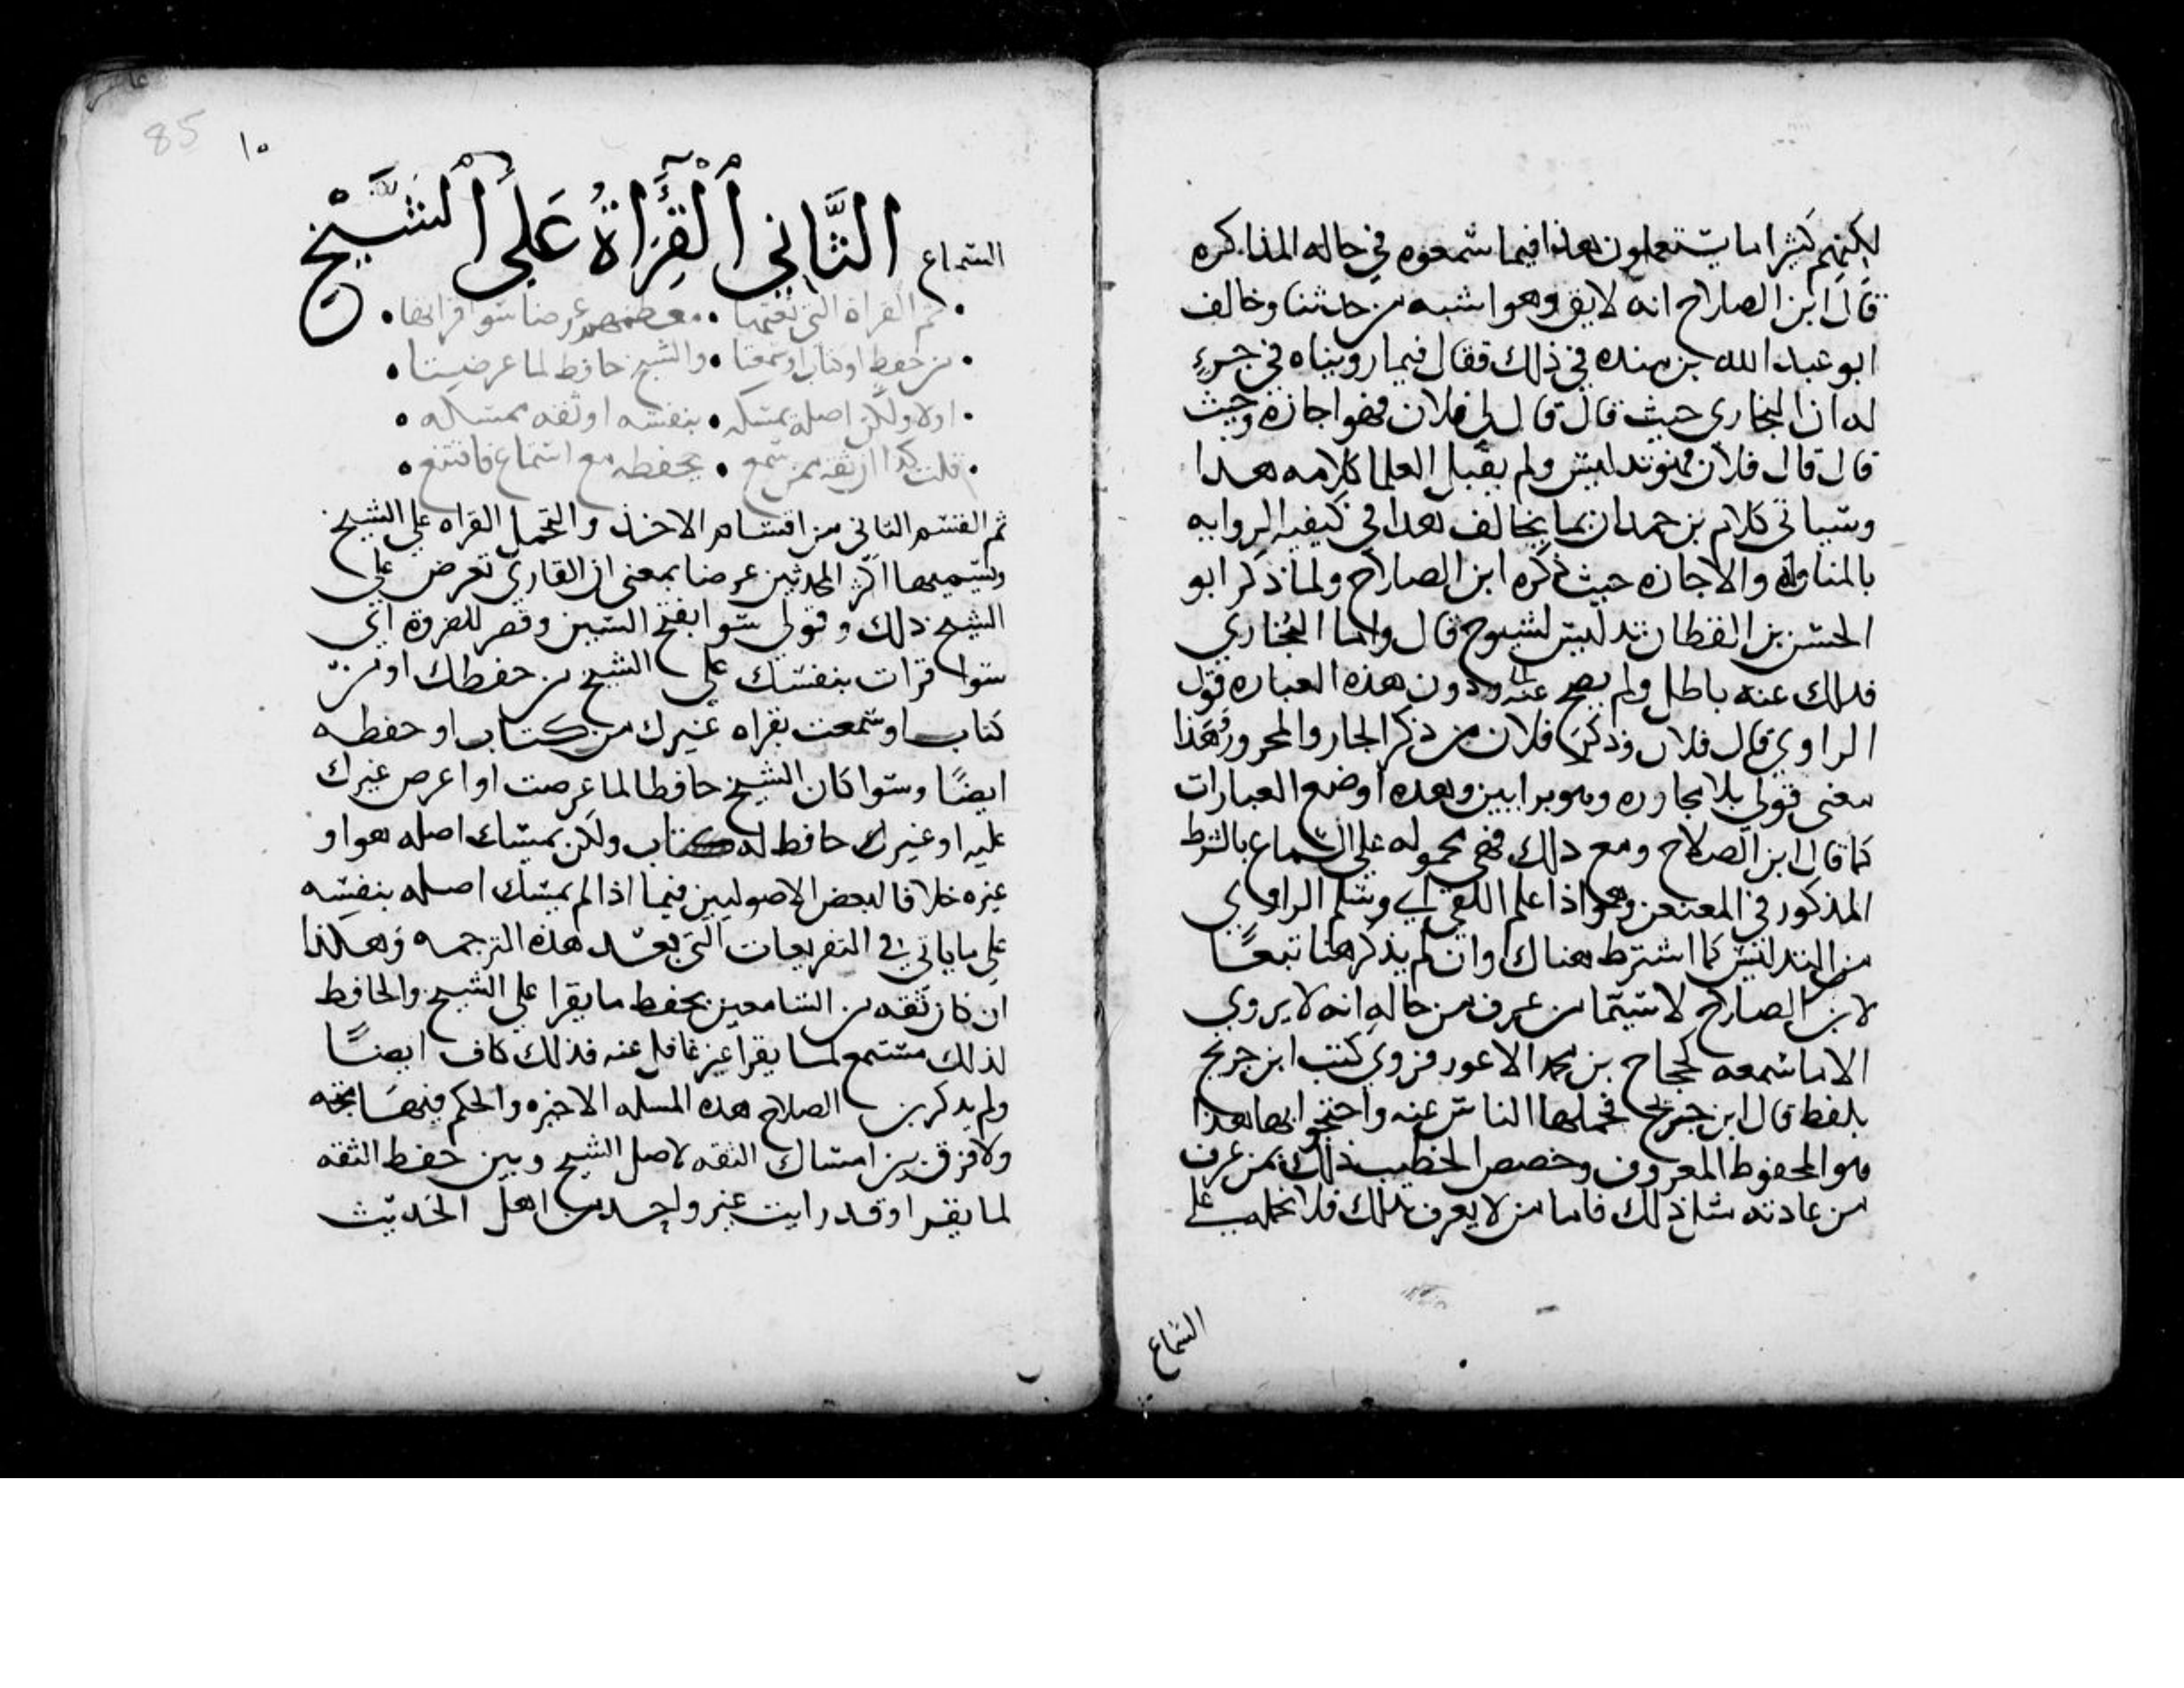 لكنهم كثيرا ما يستعملون هذا فيما سمعوه في حاله المذاكره
قال ابن الصلاح انه لايق وهو اشبه من حدثنا وخالف
ابو عبد الله بن منده في ذلك فقال فيما رويناه في جزء
له ان البخاري حيث قال قال لي فلان فهو اجازة وحيث
قال قال فلان فهو تدليس ولم يقبل العلما كلامه هذا
وسياتي كلام بن حمدان بما يخالف هذا في كيفيه الروايه
بالمناوله والاجازه حيث ذكره ابن الصلاح ولما ذكر ابو
الحسن بن القطان تدليس الشيوخ قال واما البخاري
فذلك عنه باطل ولم يصح عنه ودون هذه العباره قول
الراوي قال فلان وذكر فلان من ذكر الجار والمجرور وهذا
معنى قولي بلا مجاوره وهو برايين وهذه اوضع العبارات
كما قال ابن الصلاح ومع ذلك فهي محموله على السماع بالشرط
المذكور في المعنعن وهو اذا علم اللقي اي وسلم الراوي
من التدليس كما اشترط هناك وان لم يذكر هنا تبعًا
لابن الصلاح لا سيما من عرف من حاله انه لا يروي
الا ما سمعه كحجاج بن محمد الاعور فروى كتب ابن جريج
بلفظ قال ابن جريج فحملها الناس عنه واحتجوا بها هذا
هو المحفوظ المعروف وخصص الخطيب ذلك بمن عرف
من عادته مثل ذلك فاما من لا يعرف بذلك فلا نحمله على
السماع
١٠
85
السماع الثَّاني القِرَاةُ عَلى الشَّيْخ
• ثم القراة التي نعتها • معظمهم عرضا سوا قراتها •
• من حفظ او كتاب او سمعتا • والشيخ حافظ لما عرضتا •
• اولا ولكن اصله يمسكه • بنفسه او ثقه ممسكه •
• قلت كذا ان ثقه ممن سمع • يحفظه مع استماع فاقتنع •
ثم القسم الثاني من اقسام الاخذ والتحمل القراه على الشيخ
ويسميها اكثر المحدثين عرضا بمعنى ان القاري تعرض على
الشيخ ذلك وقولي سوا بفتح السين وقصر للضروة اي
سوا قرات بنفسك على الشيخ من حفظك او من
كتاب او سمعت بقراه غيرك من كتاب او حفظه
ايضًا وسوا كان الشيخ حافظا لما عرضت او اعرض غيرك
عليه او غيرك حافظ له كتاب ولكن يمسك اصله هو او
غيره خلافا لبعض الاصوليين فيما اذا لم يمسك اصله بنفسه
على ما ياتي في التفريعات التي بعد هذه الترجمه وهكذا
ان كان ثقه من السامعين يحفظ ما يقرا على الشيخ والحافظ
لذلك مستمع لما يقرا غير غافل عنه فذلك كاف ايضًا
ولم يذكر بن الصلاح هذه المسله الاخيره والحكم فيها متجه
ولا فرق بين امساك الثقه لاصل الشيخ وبين حفظ الثقه
لما يقرا وقد رايت غير واحد من اهل الحديث